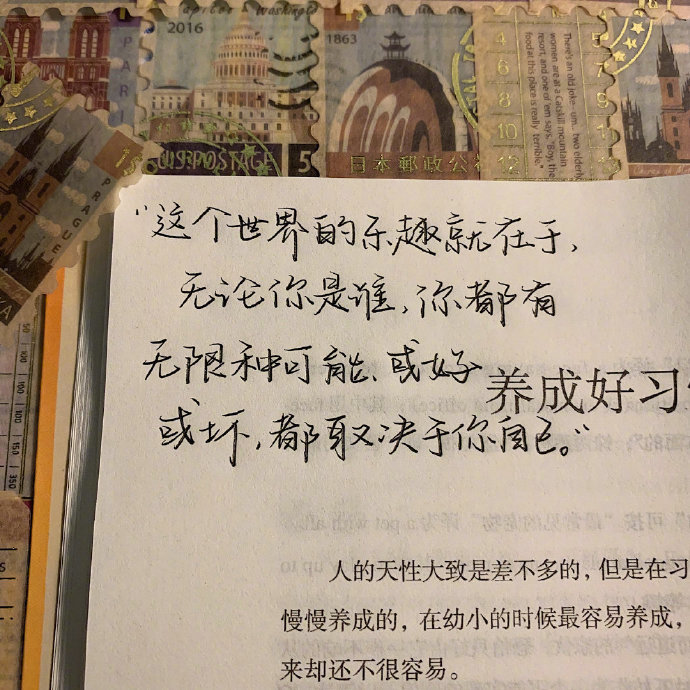 PARIS
2016
Washington
1863
U.S. POSTAGE
5
日本郵政公社
4 5
6 7
8 9
10 11
12
There's an old joke- um- two elderly
women are at a Catskill mountain
resort, and one of 'em says, "Boy, the
food at this place is really terrible."
PRAGUE
“这个世界的乐趣就在于，
无论你是谁，你都有
无限种可能、或好
或坏，都取决于你自己。”
养成好习
人的天性大致是差不多的，但是在习
慢慢养成的，在幼小的时候最容易养成，
来却还不很容易。
50
100
150
350